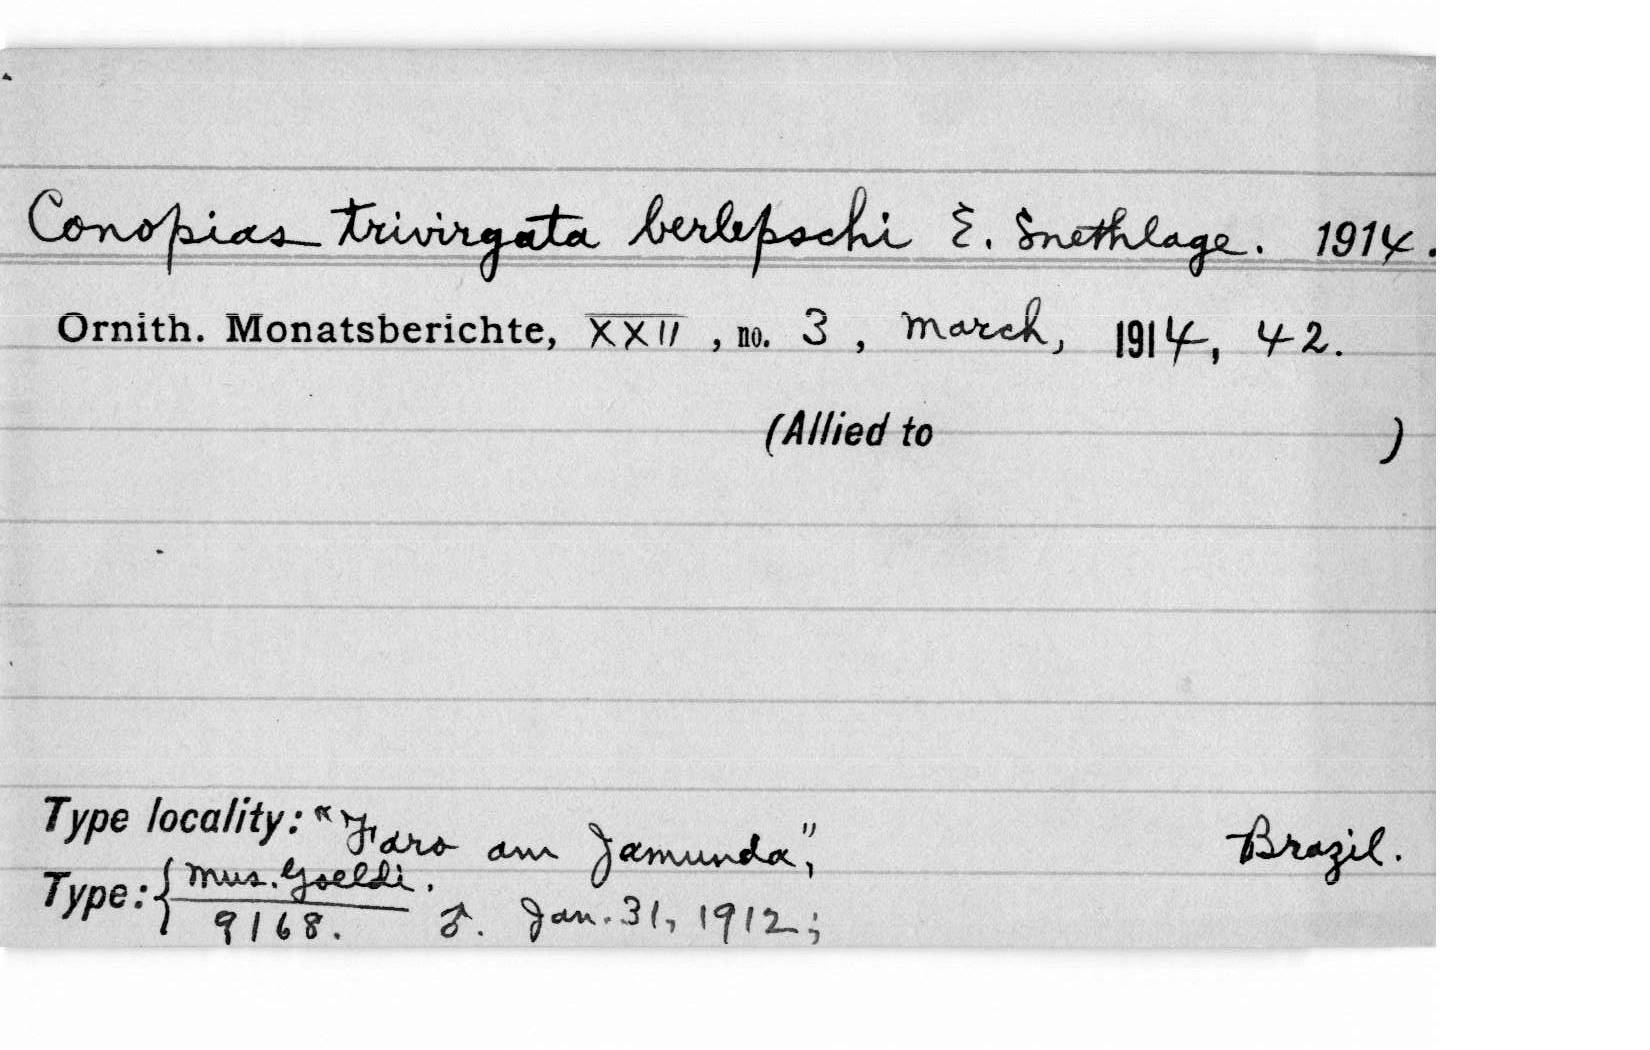 Conopias trivirgata berlepschi E. Snethlage. 1914.
Ornith. Monatsberichte, XXII, no. 3, March, 1914, 42.
(Allied to )
Type locality: "Faro am Jamunda", Brazil.
Type: { Mus. Goeldi.
9168. ♂. Jan. 31, 1912;